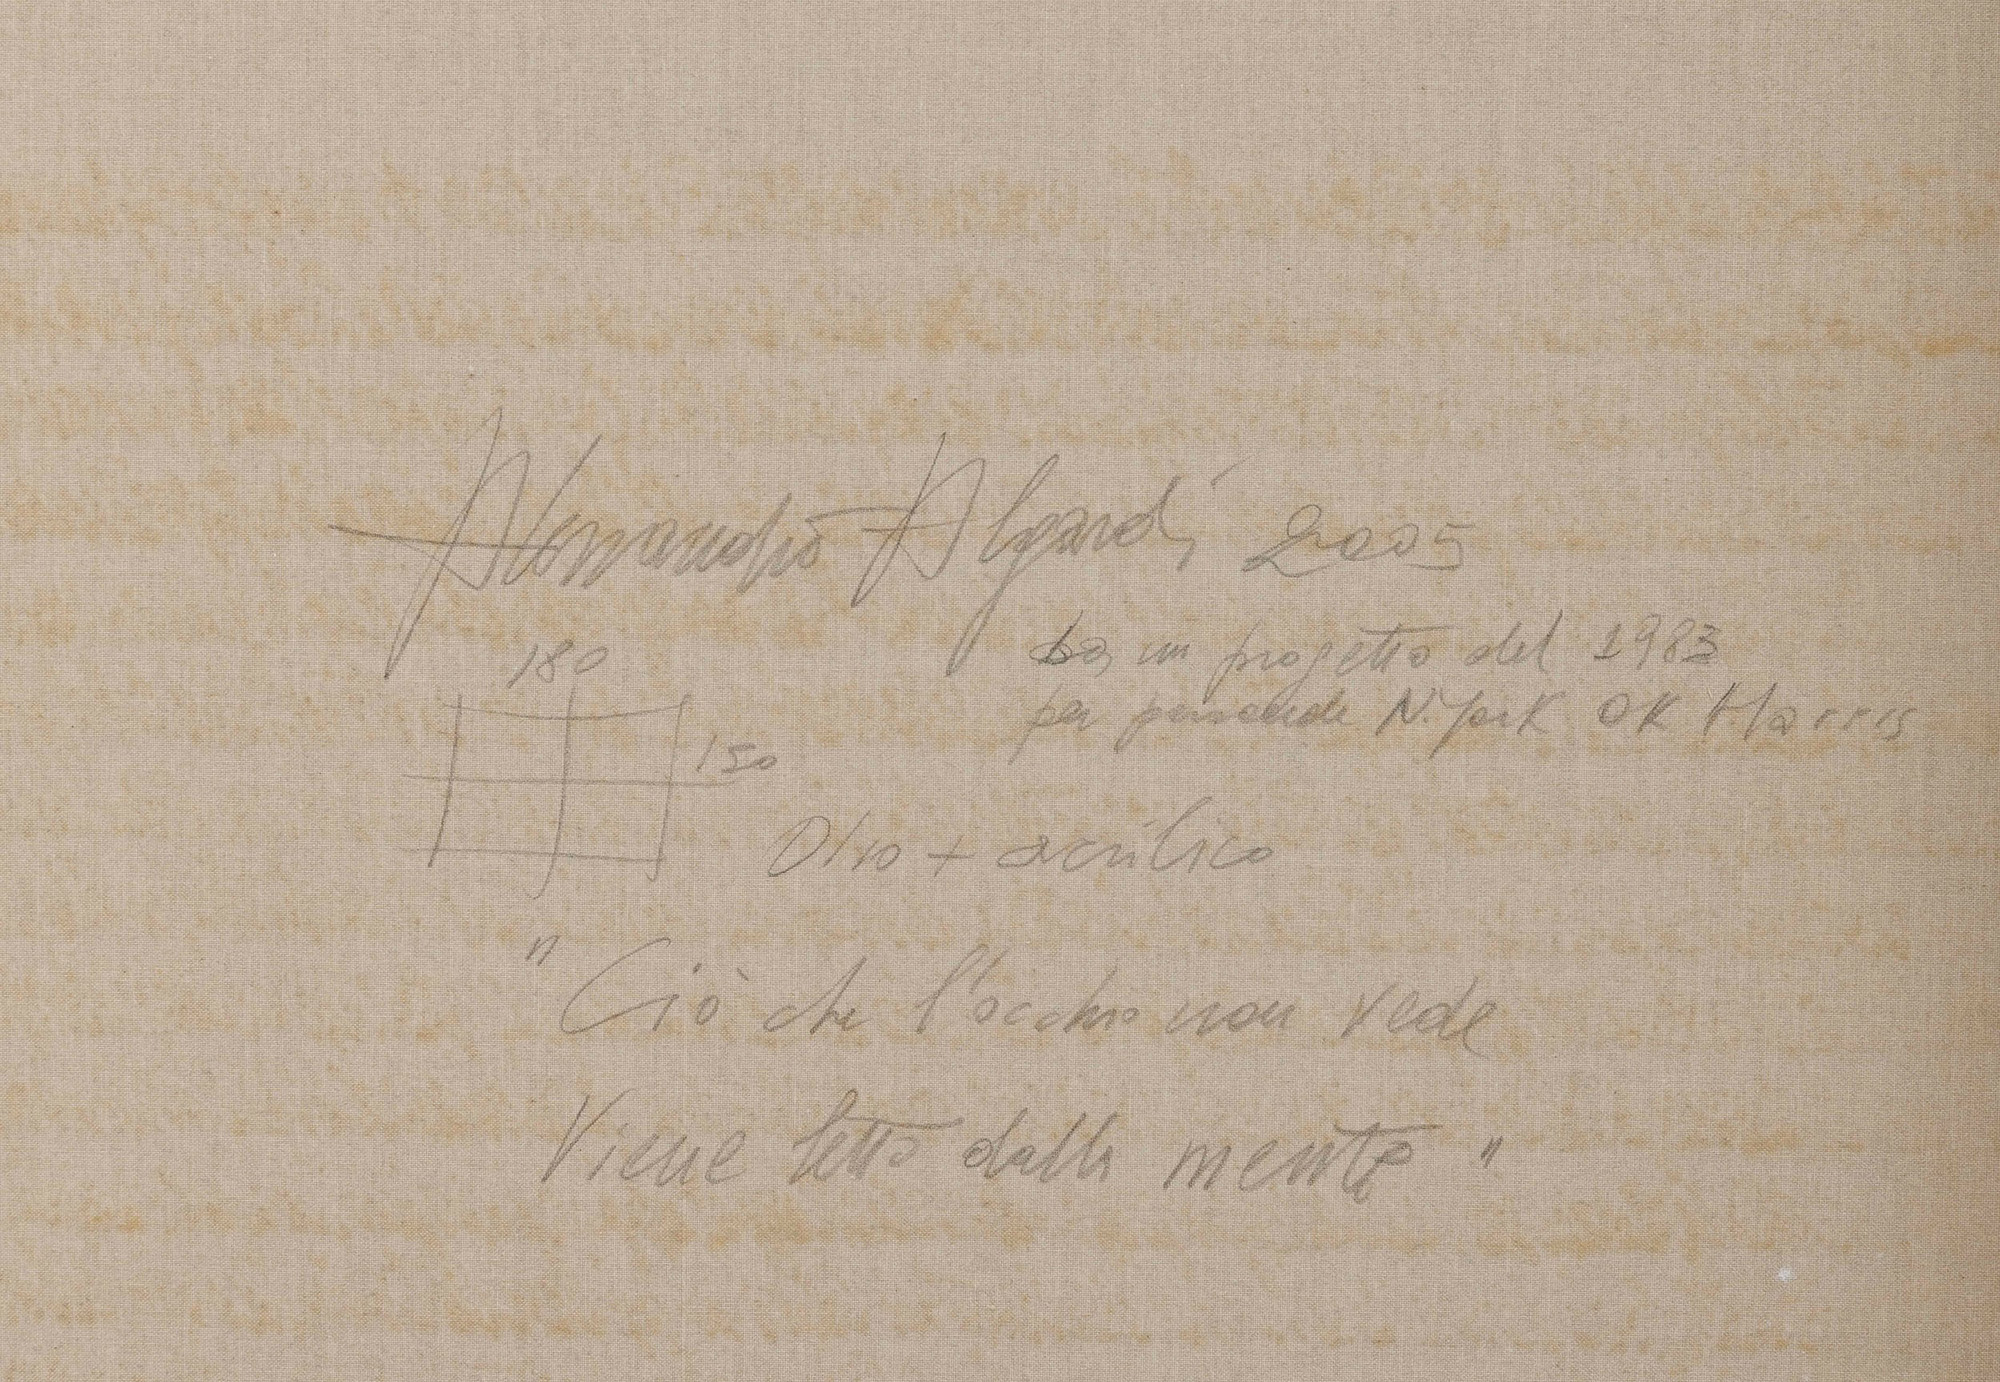 Alessandro Algardi 2005
Da un progetto del 1983
180
per personale N. York OK Harris
150
Olio + acrilico
"Ciò che l'occhio non vede
Viene letto dalla mente"